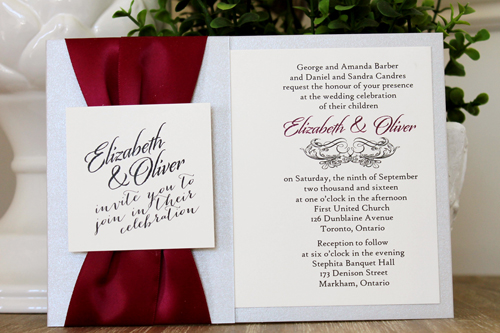 Elizabeth
& Oliver
invite you to
join in their
celebration
George and Amanda Barber
and Daniel and Sandra Candres
request the honour of your presence
at the wedding celebration
of their children
Elizabeth & Oliver
on Saturday, the ninth of September
two thousand and sixteen
at one o'clock in the afternoon
First United Church
126 Dunblaine Avenue
Toronto, Ontario
Reception to follow
at six o'clock in the evening
Stephita Banquet Hall
173 Denison Street
Markham, Ontario